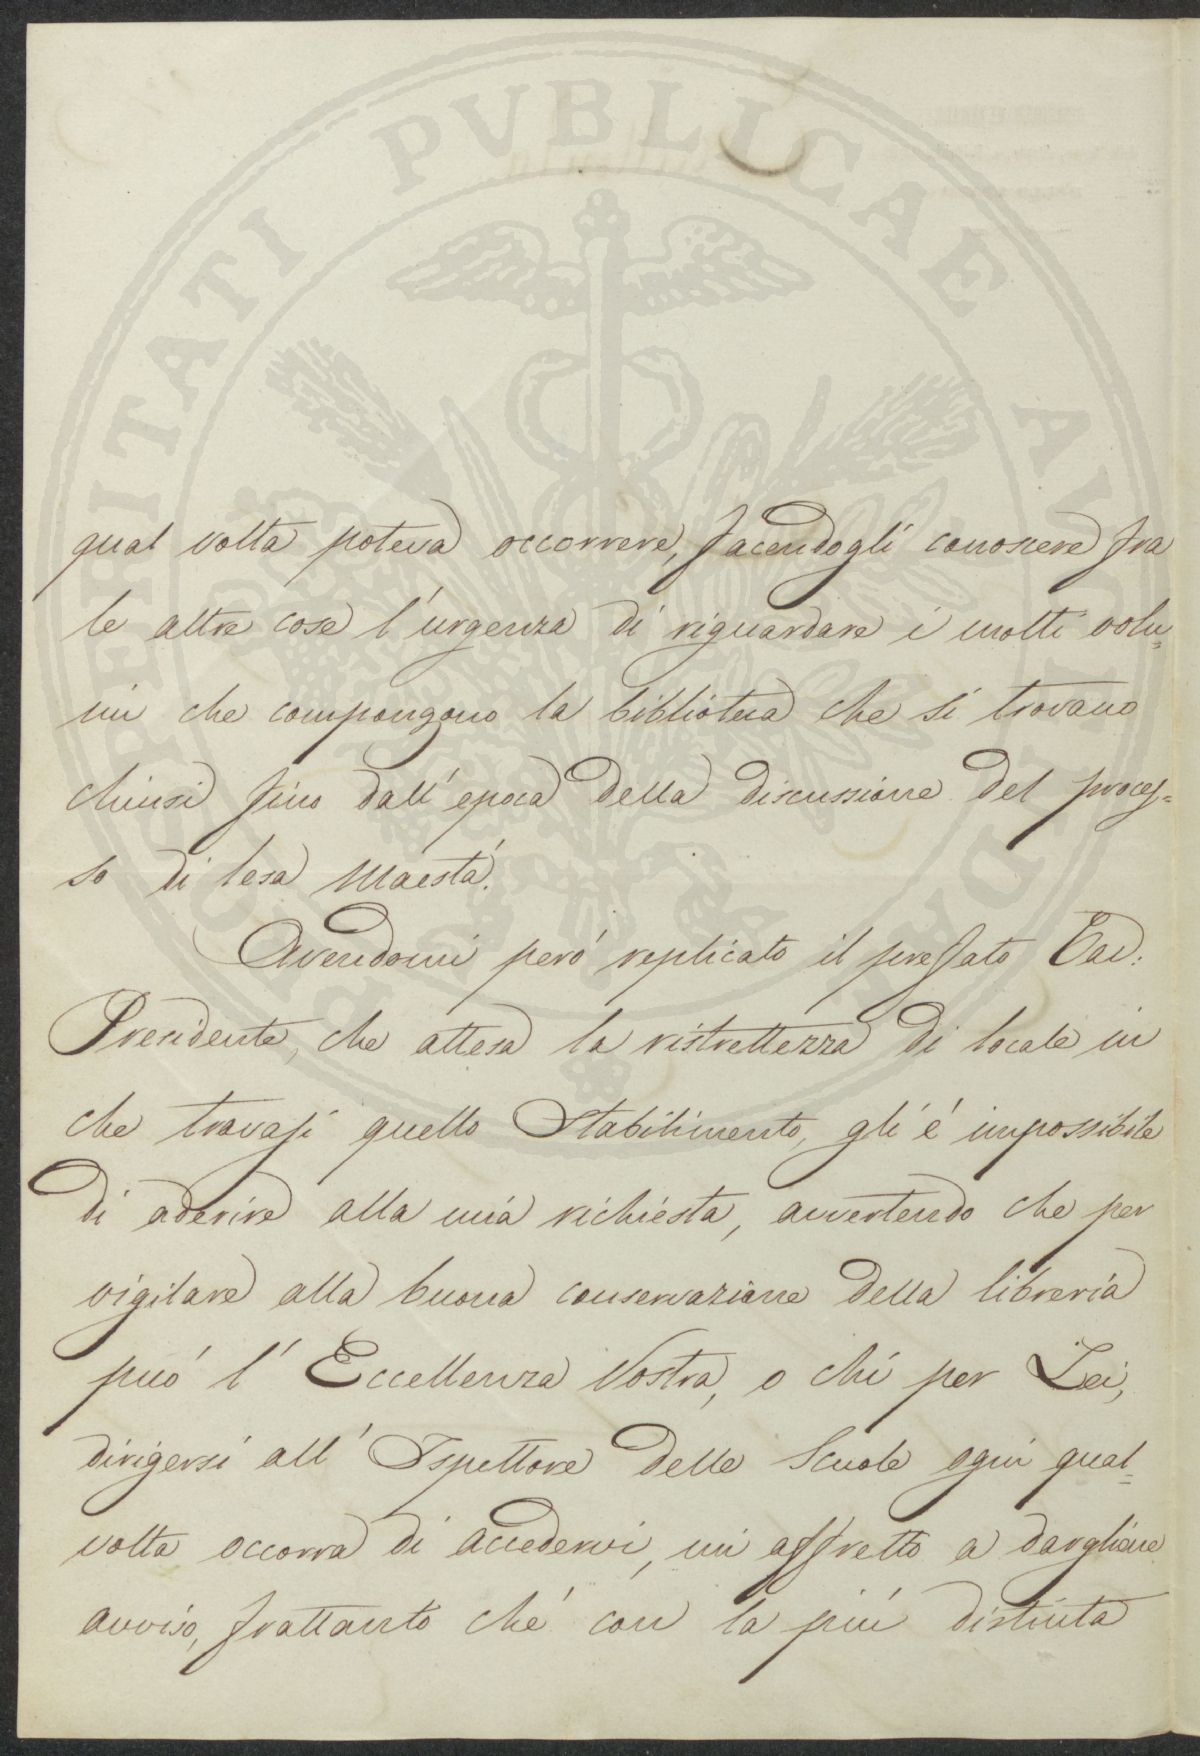 PROSPERITATI PVBLICAE AVGENDAE
qual volta poteva occorrere, facendogli conoscere fra
le altre cose l'urgenza di riguardare i molti volu=
mi che compongono la biblioteca che si trovano
chiusi fino dall'epoca della discussione del proces=
so di lesa Maestà.
Avendomi però replicato il prefato Cav:
Presidente, che attesa la ristrettezza di locale in
che trovasi quello Stabilimento, gli è impossibile
di aderire alla mia richiesta, avvertendo che per
vigilare alla buona conservazione della libreria
può l'Eccellenza Vostra, o chi per Lei,
dirigersi all'Ispettore delle Scuole ogni qual=
volta occorra di accedervi, mi affretto a dargliene
avviso, frattanto che con la più distinta